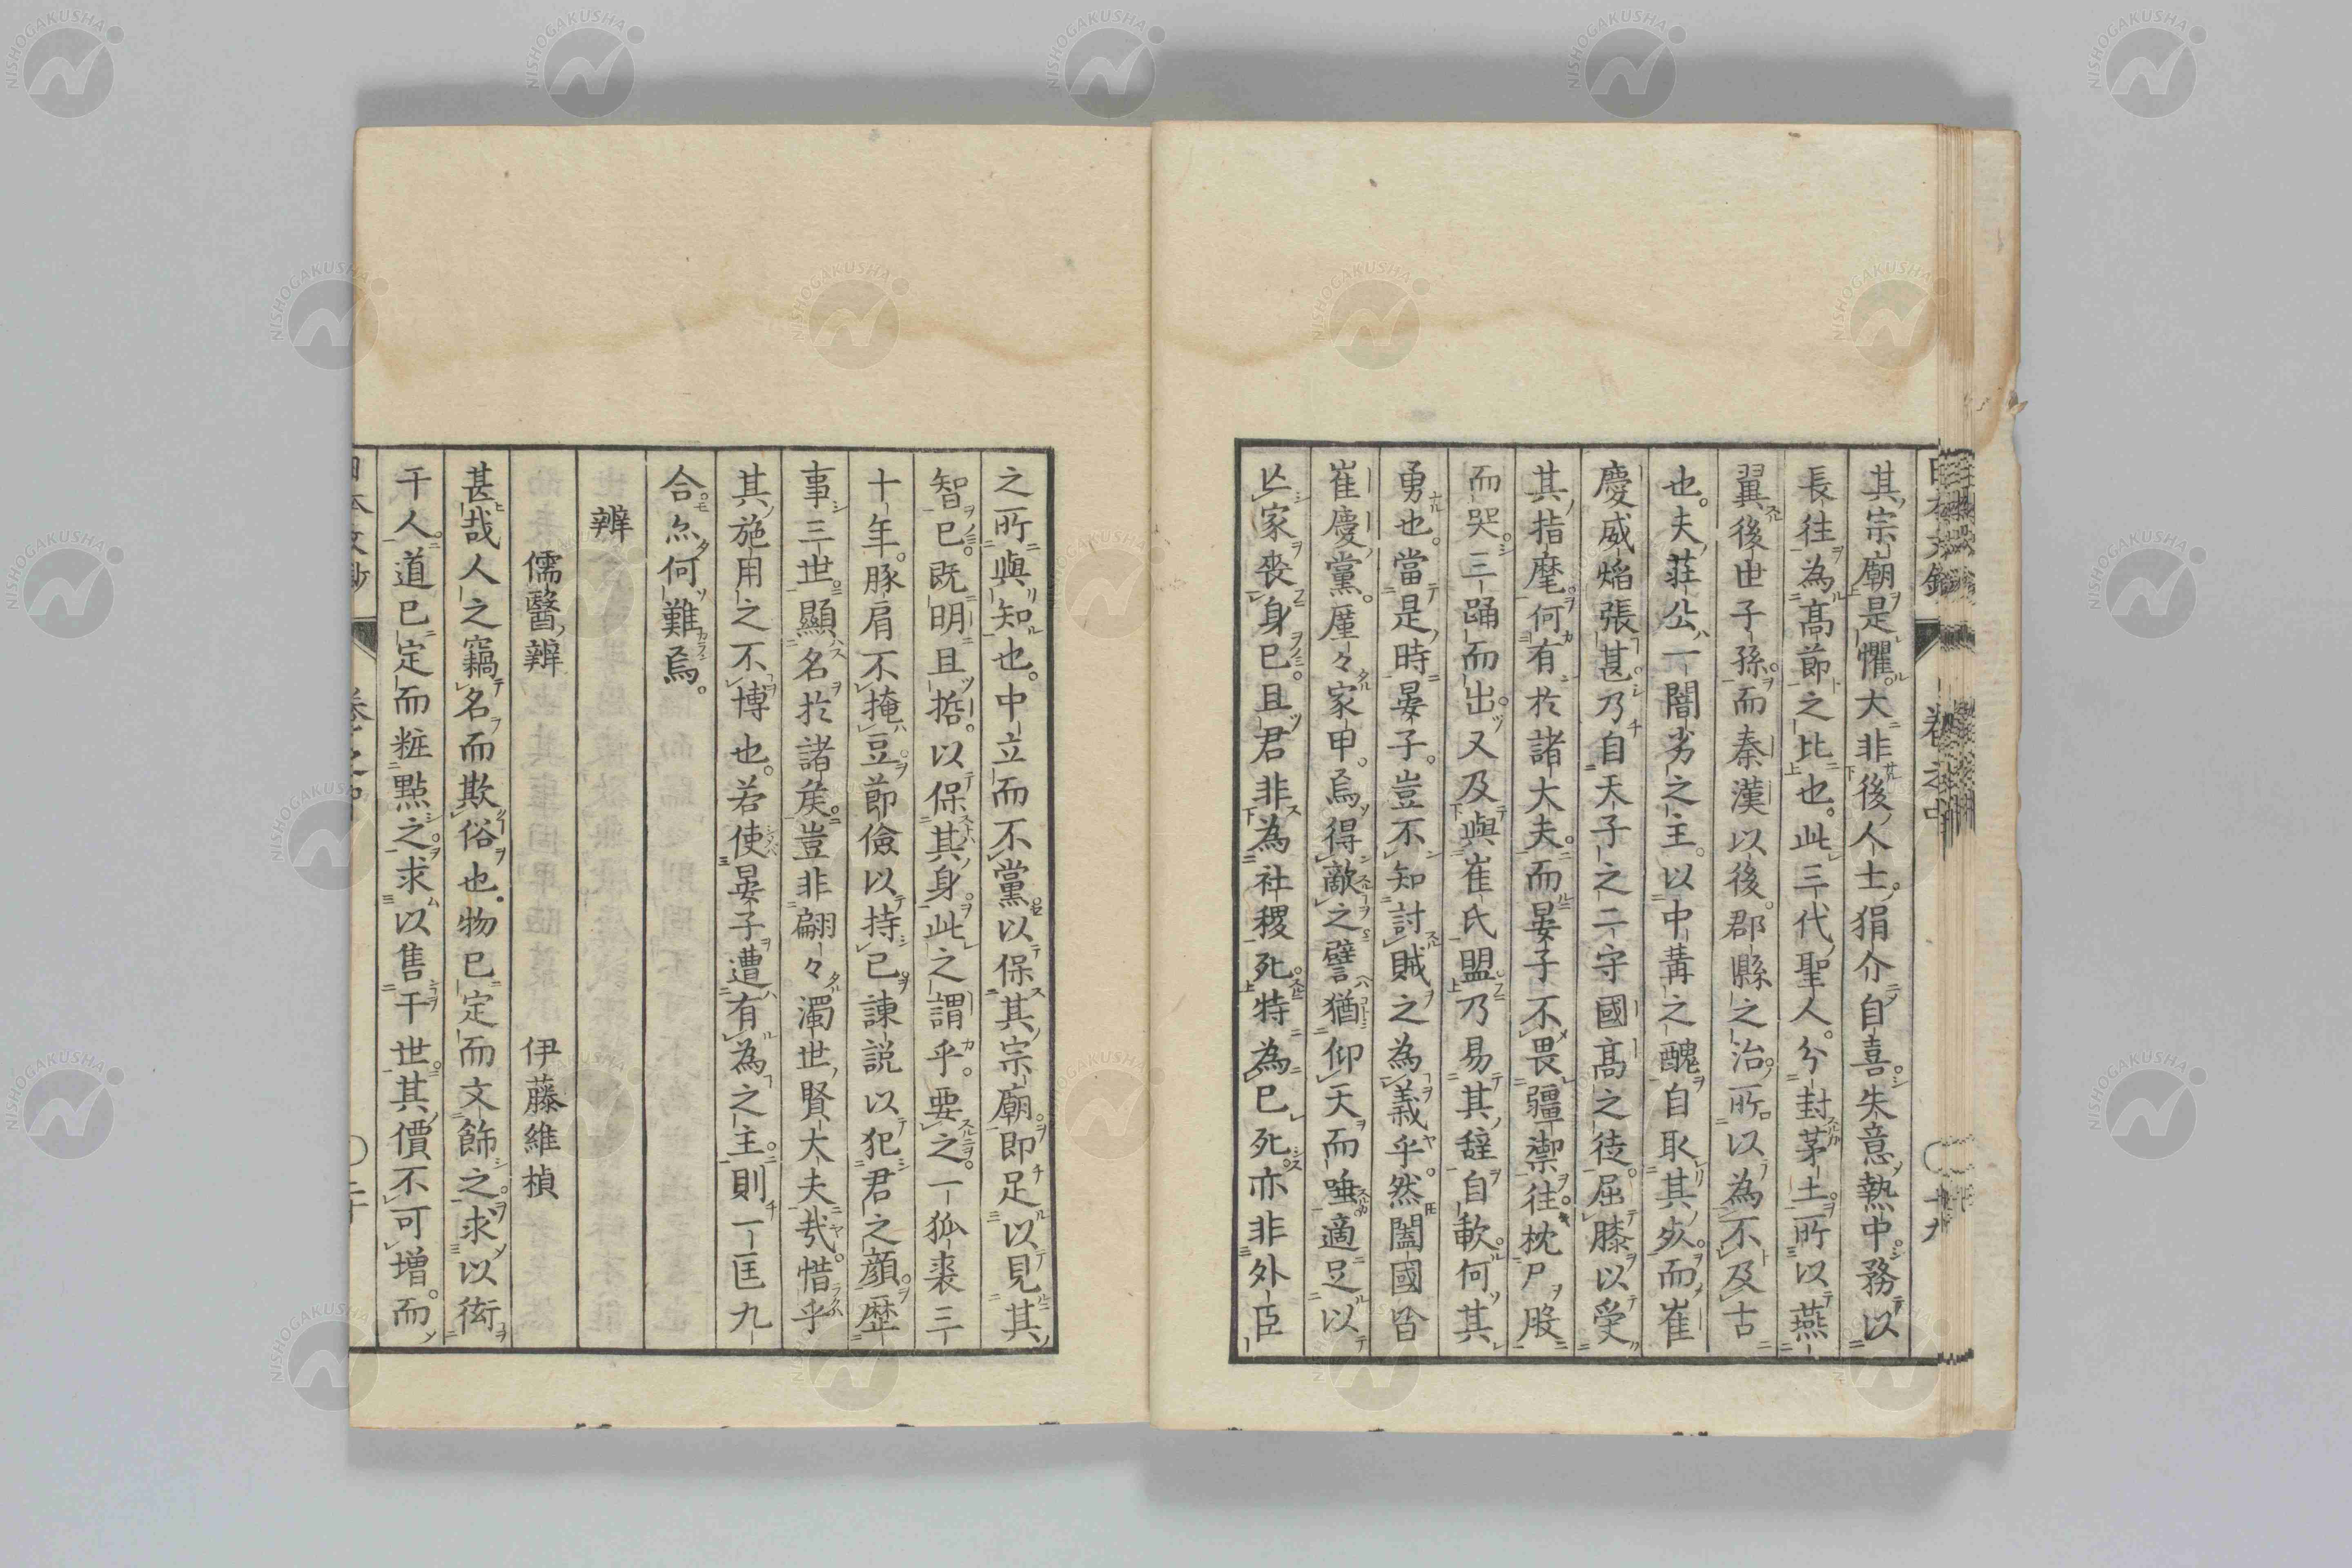 其宗廟是懼大非後人士狷介自喜朱意熱中務以
長往為高節之比也此三代聖人分封茅土所以燕
翼後世子孫而秦漢以後郡縣之治所以為不及古
也夫莊公一闇劣之主以中冓之醜自取其死而崔
慶威焰張甚乃自天子之二守國高之徒屈膝以受
其指麾何有於諸大夫而晏子不畏彊禦往枕尸股
而哭三踊而出又及與崔氏盟乃易其辭自歃何其
勇也當是時晏子豈不知討賊之為義乎然闔國皆
崔慶黨厪々家甲烏得敵之譬猶仰天而唾適足以
亾家喪身已且君非為社稷死特為已死亦非外臣
之所與知也中立而不黨以保其宗廟即足以見其
智已既明且哲以保其身此之謂乎要之一狐裘三
十年豚肩不掩豆節儉以持已諫説以犯君之顔歴
事三世顯名於諸矦豈非翩々濁世賢大夫哉惜乎
其施用之不博也若使晏子遭有為之主則一匡九
合亦何難焉
辨
儒醫辨 伊藤維楨
甚哉人之竊名而欺俗也物已定而文飾之求以衒
于人道已定而粧點之求以售于世其價不可增而
NISHOGAKUSHA